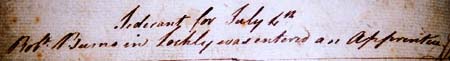 Sederunt for July 4th
Robt. Burns in Lochly was entered an Apprentice